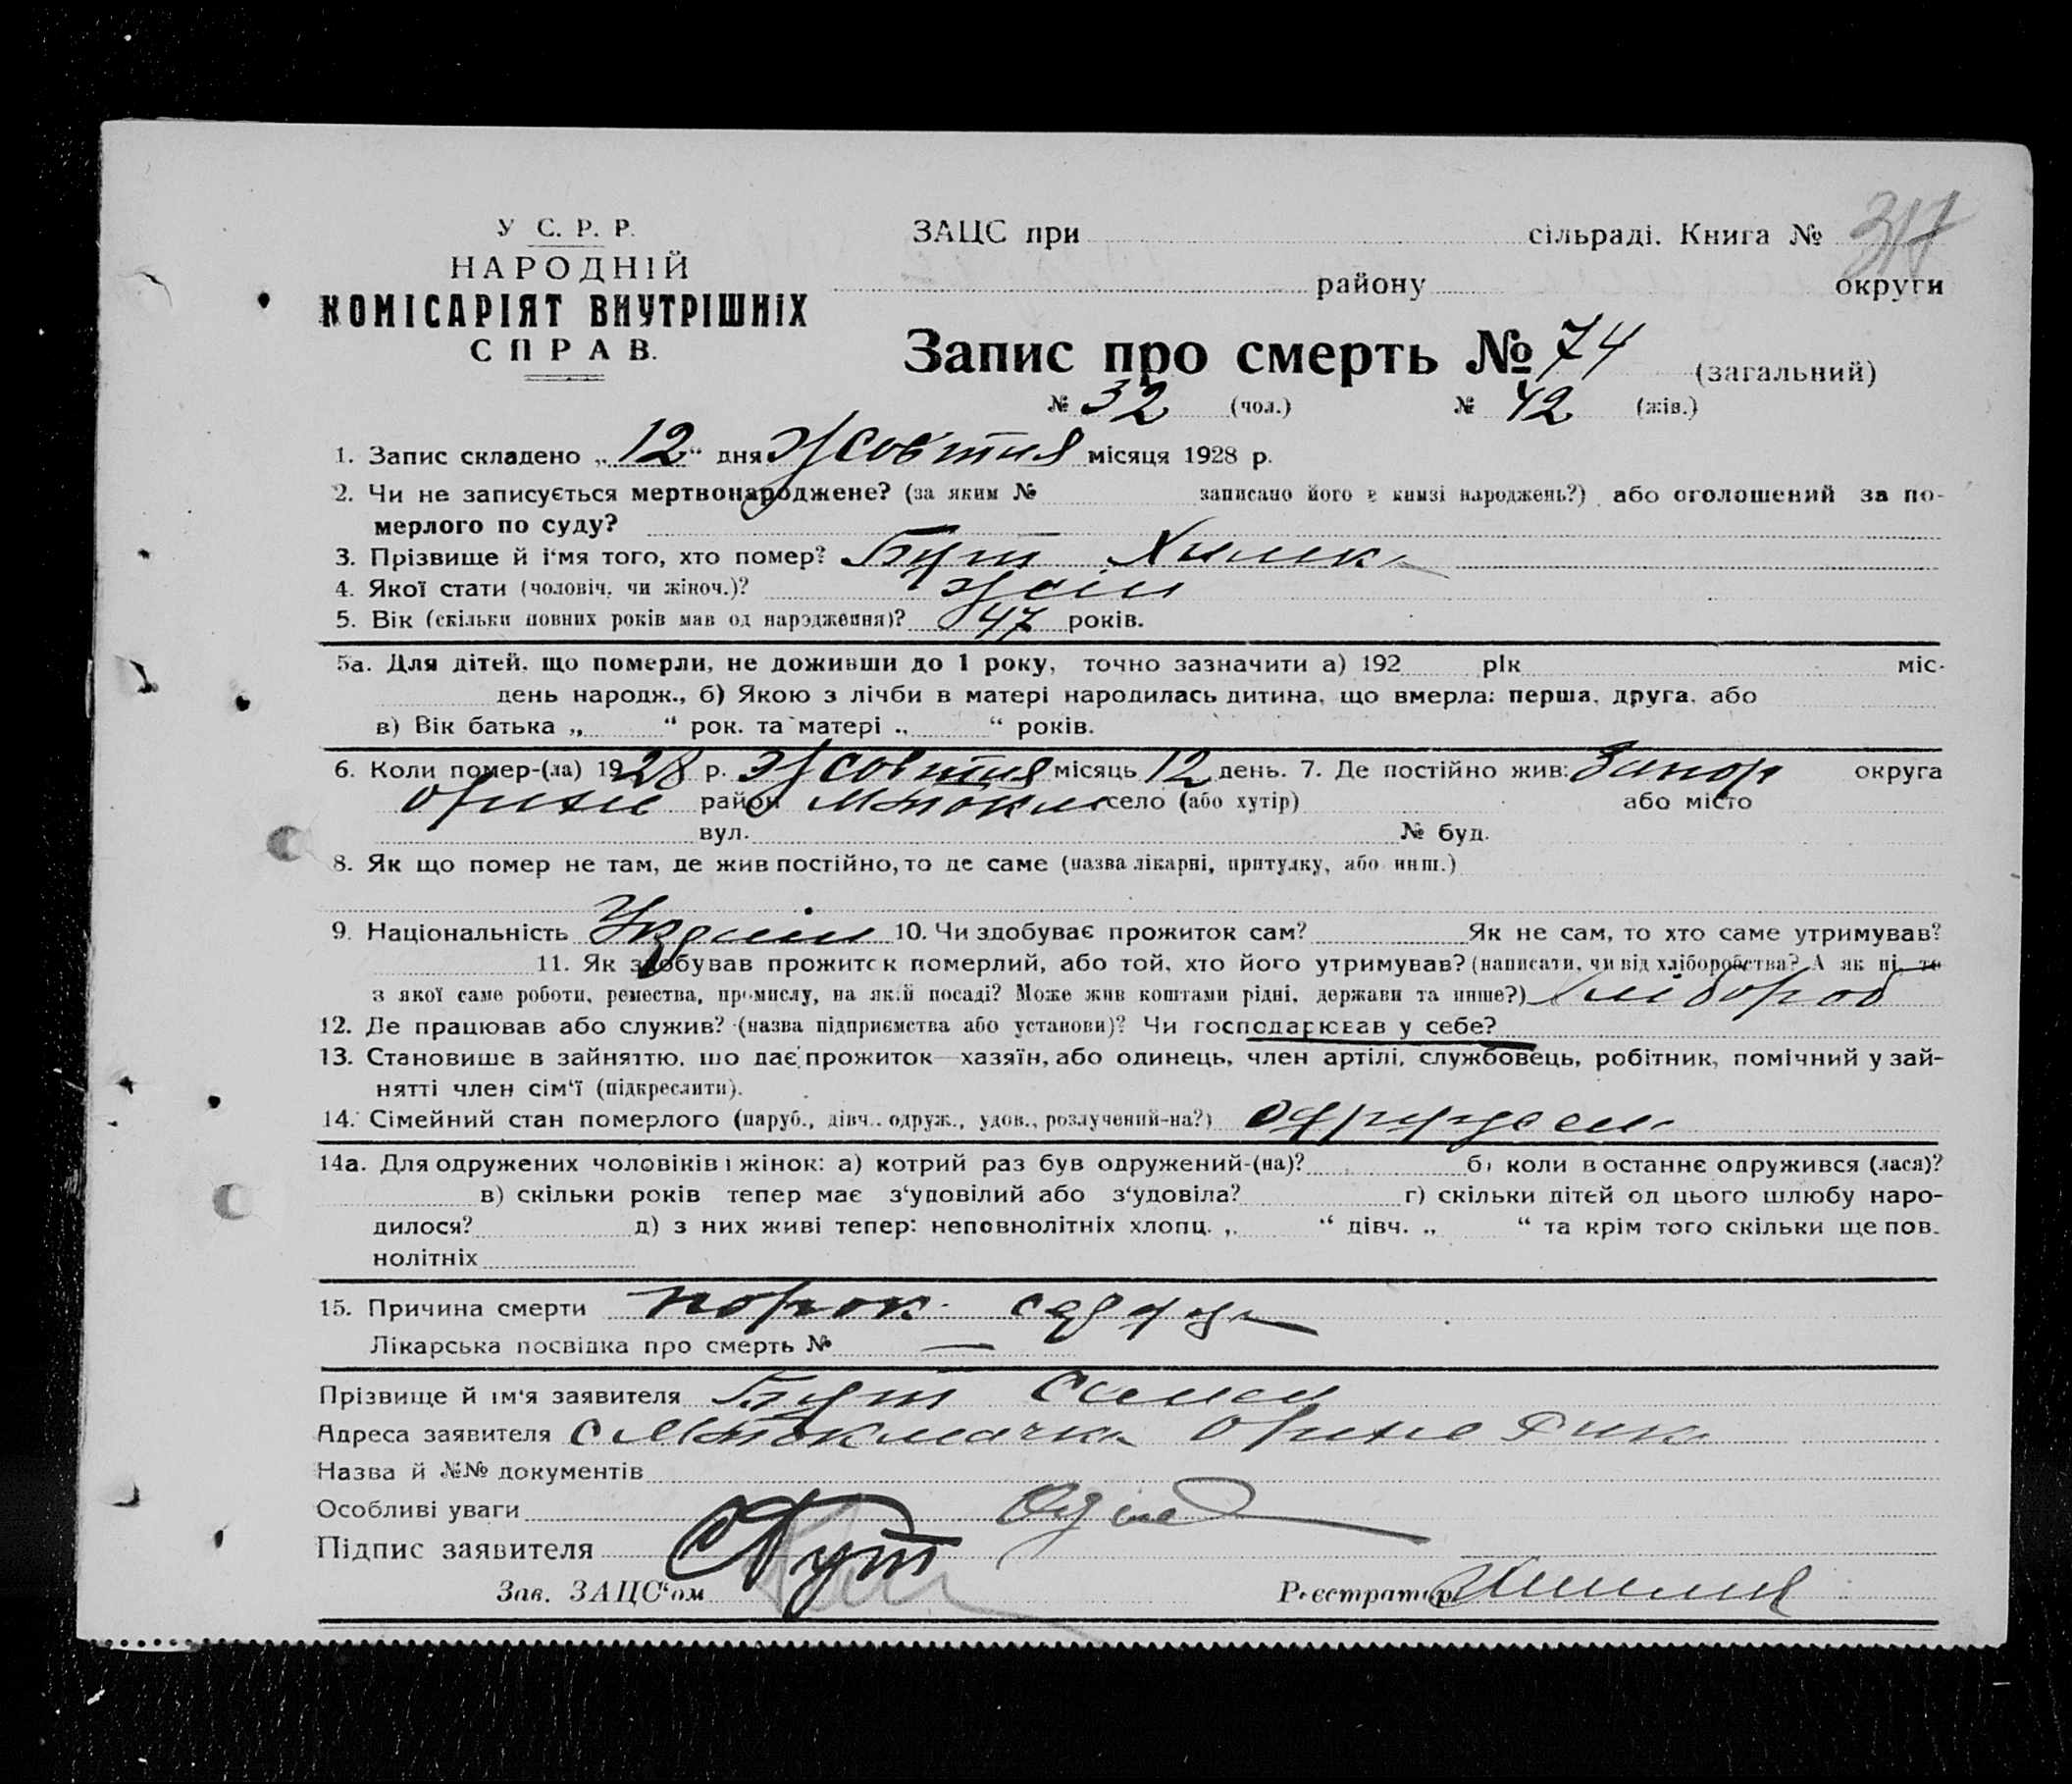 У С. Р. Р.
НАРОДНІЙ
КОМІСАРІЯТ ВНУТРІШНІХ
СПРАВ.
ЗАЦС при сільраді. Книга №
району округи
Запис про смерть № 74 (загальний)
№ 32 (чол.) № 42 (жів.)
1. Запис складено „12“ дня Жовтня місяця 1928 р.
2. Чи не записується мертвонароджене? (за яким № записано його в книзі народжень?) або оголошений за по-
мерлого по суду?
3. Прізвище й і'мя того, хто помер? Бут
4. Якої стати (чоловіч. чи жіноч.)? жін
5. Вік (скільки повних років мав од народження)? 47 років.
5а. Для дітей, що померли, не доживши до 1 року, точно зазначити а) 192 рік міс.
день народж., б) Якою з лічби в матері народилась дитина, що вмерла: перша, друга, або
в) Вік батька „ “ рок. та матері „ “ років.
6. Коли помер-(ла) 1928 р. Жовтня місяць 12 день. 7. Де постійно жив: Запор округа
Оріхів район М Токм село (або хутір) або місто
вул. № буд.
8. Як що помер не там, де жив постійно, то де саме (назва лікарні, притулку, або инш.)
9. Національність Україн 10. Чи здобуває прожиток сам? Як не сам, то хто саме утримував?
11. Як здобував прожиток померлий, або той, хто його утримував? (написати, чи від хліборобства? А як ні, то
з якої саме роботи, ремества, промислу, на якій посаді? Може жив коштами рідні, держави та инше?) хлібороб
12. Де працював або служив? (назва підприємства або установи)? Чи господарював у себе?
13. Становише в зайняттю, що дає прожиток—хазяїн, або одинець, член артілі, службовець, робітник, помічний у зай-
нятті член сім'ї (підкреслити).
14. Сімейний стан померлого (паруб., дівч. одруж., удов., розлучений-на?)
14а. Для одружених чоловіків і жінок: а) котрий раз був одружений-(на)? б) коли в останнє одружився (лася)?
в) скільки років тепер має з'уповілий або з'удовіла? г) скільки дітей од цього шлюбу наро-
дилося? д) з них живі тепер: неповнолітніх хлопц. „ “ дівч. „ “ та крім того скільки ще пов-
нолітніх
15. Причина смерти порок серця
Лікарська посвідка про смерть № —
Прізвище й ім'я заявителя Бут
Адреса заявителя с М Токмачка Оріхів
Назва й №№ документів
Особливі уваги
Підпис заявителя Бут
Зав. ЗАЦС'ом Реєстратор